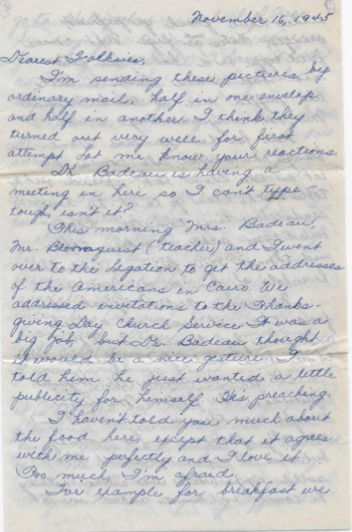 November 16, 1945
Dearest Folksies,
I'm sending these pictures by
ordinary mail, half in one envelop
and half in another. I think they
turned out very well for first
attempt. Let me know your reactions.
Dr. Badeau is having a
meeting in here so I can't type -
tough, isn't it?
This morning Mrs. Badeau,
Mr. Bloomquist (teacher) and I went
over to the Legation to get the addresses
of the Americans in Cairo. We
addressed invitations to the Thanks-
giving Day Church Service. It was a
big job, but Dr. Badeau thought
it would be a nice gesture. I
told him he just wanted a little
publicity for himself. He's preaching.
I haven't told you much about
the food here, except that it agrees
with me perfectly and I love it.
Too much, I'm afraid.
For example for breakfast we